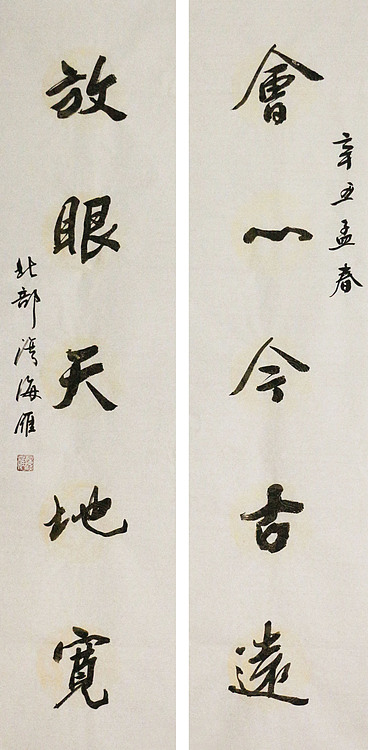 辛丑孟春
會心今古遠
放眼天地寬
北部湾海雁